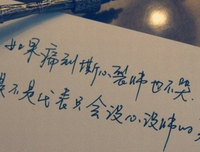 如果痛到撕心裂肺也不哭.
是不是代表只会没心没肺的